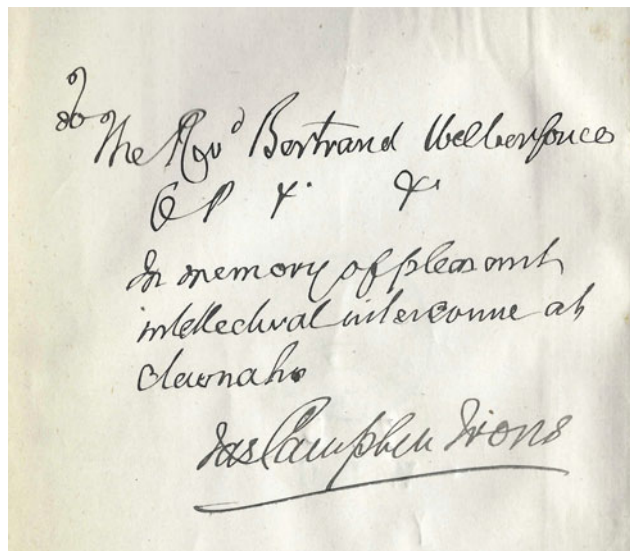 To
The Revd Bertrand Wilberforce
O P & &
In memory of pleasant
intellectual intercourse at

Jas Campbell Irons